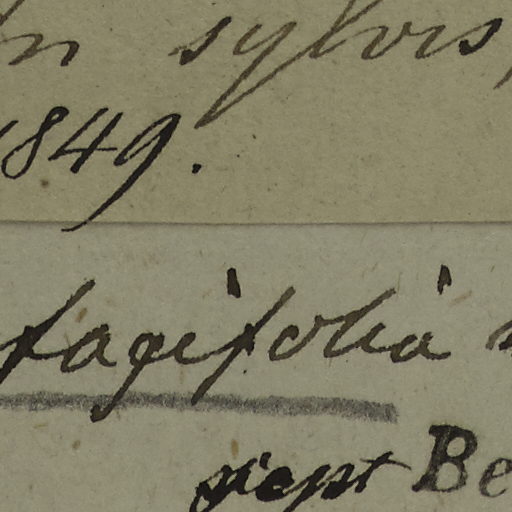 in sylvis,
1849.
fagifolia
scripst Be